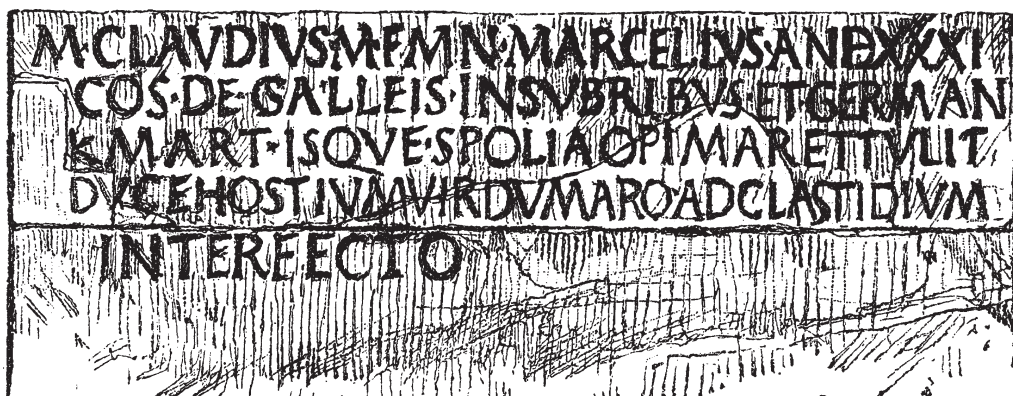 M·CLAVDIVS·M·F·M N·MARCELLVS·AN DXXXI
COS·DE·GALLEIS·INSVBRIBVS·ET GERMAN
K MART·ISQVE·SPOLIA OPIMA RETTVLIT
DVCE HOSTIVM VIRDVMARO AD CLASTIDIVM
INTERFECTO